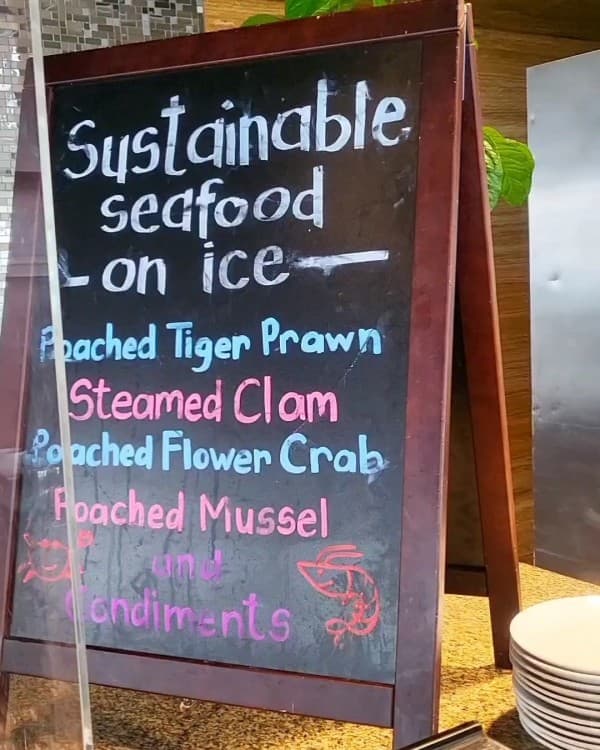 Sustainable
seafood
- on ice —
Poached Tiger Prawn
Steamed Clam
Poached Flower Crab
Poached Mussel
and
Condiments